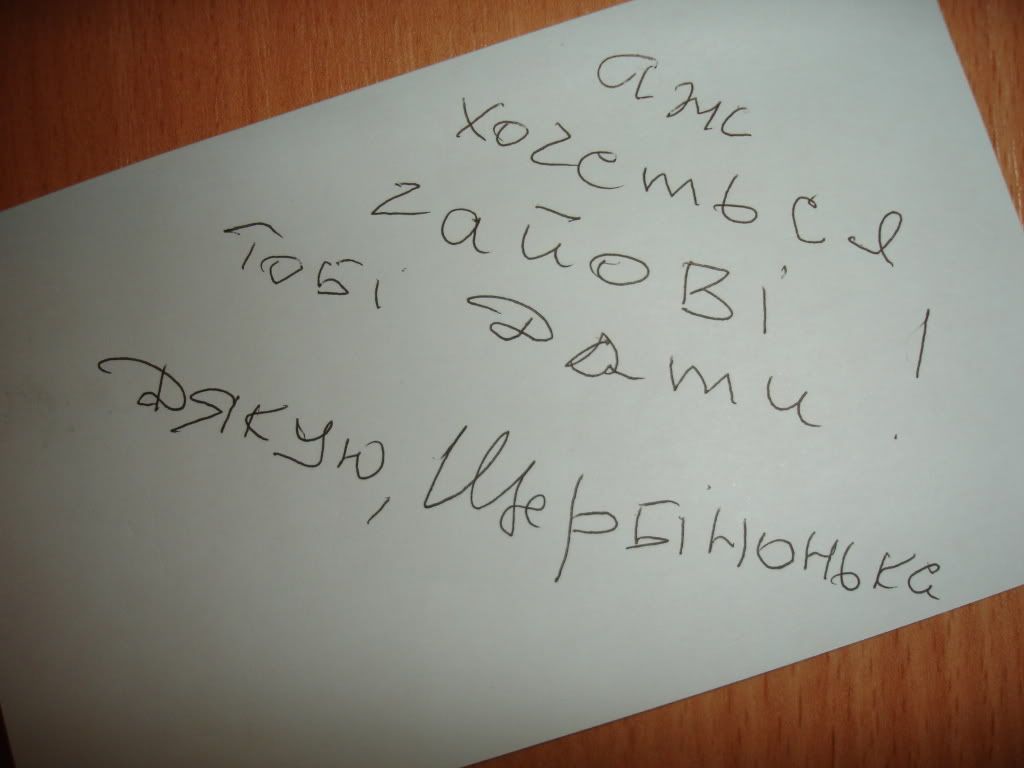 аж
хочеться
чайові
Тобі дати!
Дякую, Щербінонька